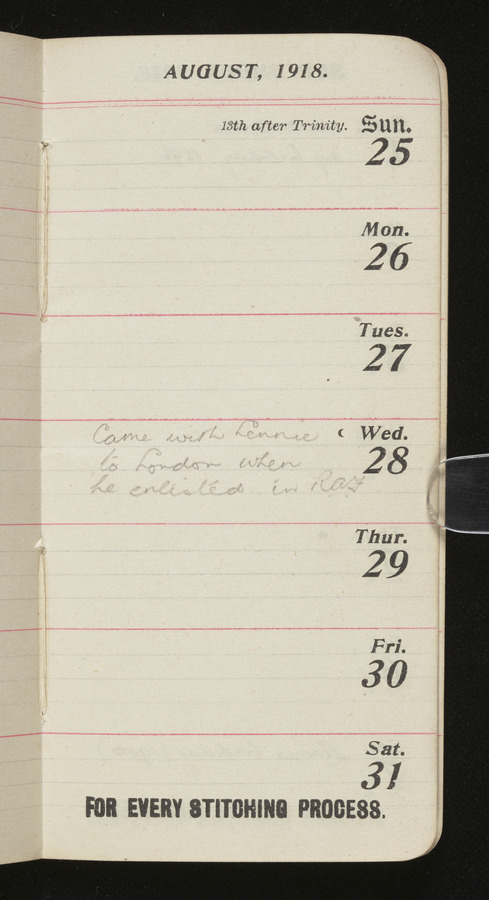 AUGUST, 1918.
13th after Trinity. Sun.
25
Mon.
26
Tues.
27
Came with Lennie Wed.
to London when 28
he enlisted in RAF
Thur.
29
Fri.
30
Sat.
31
FOR EVERY STITCHING PROCESS.